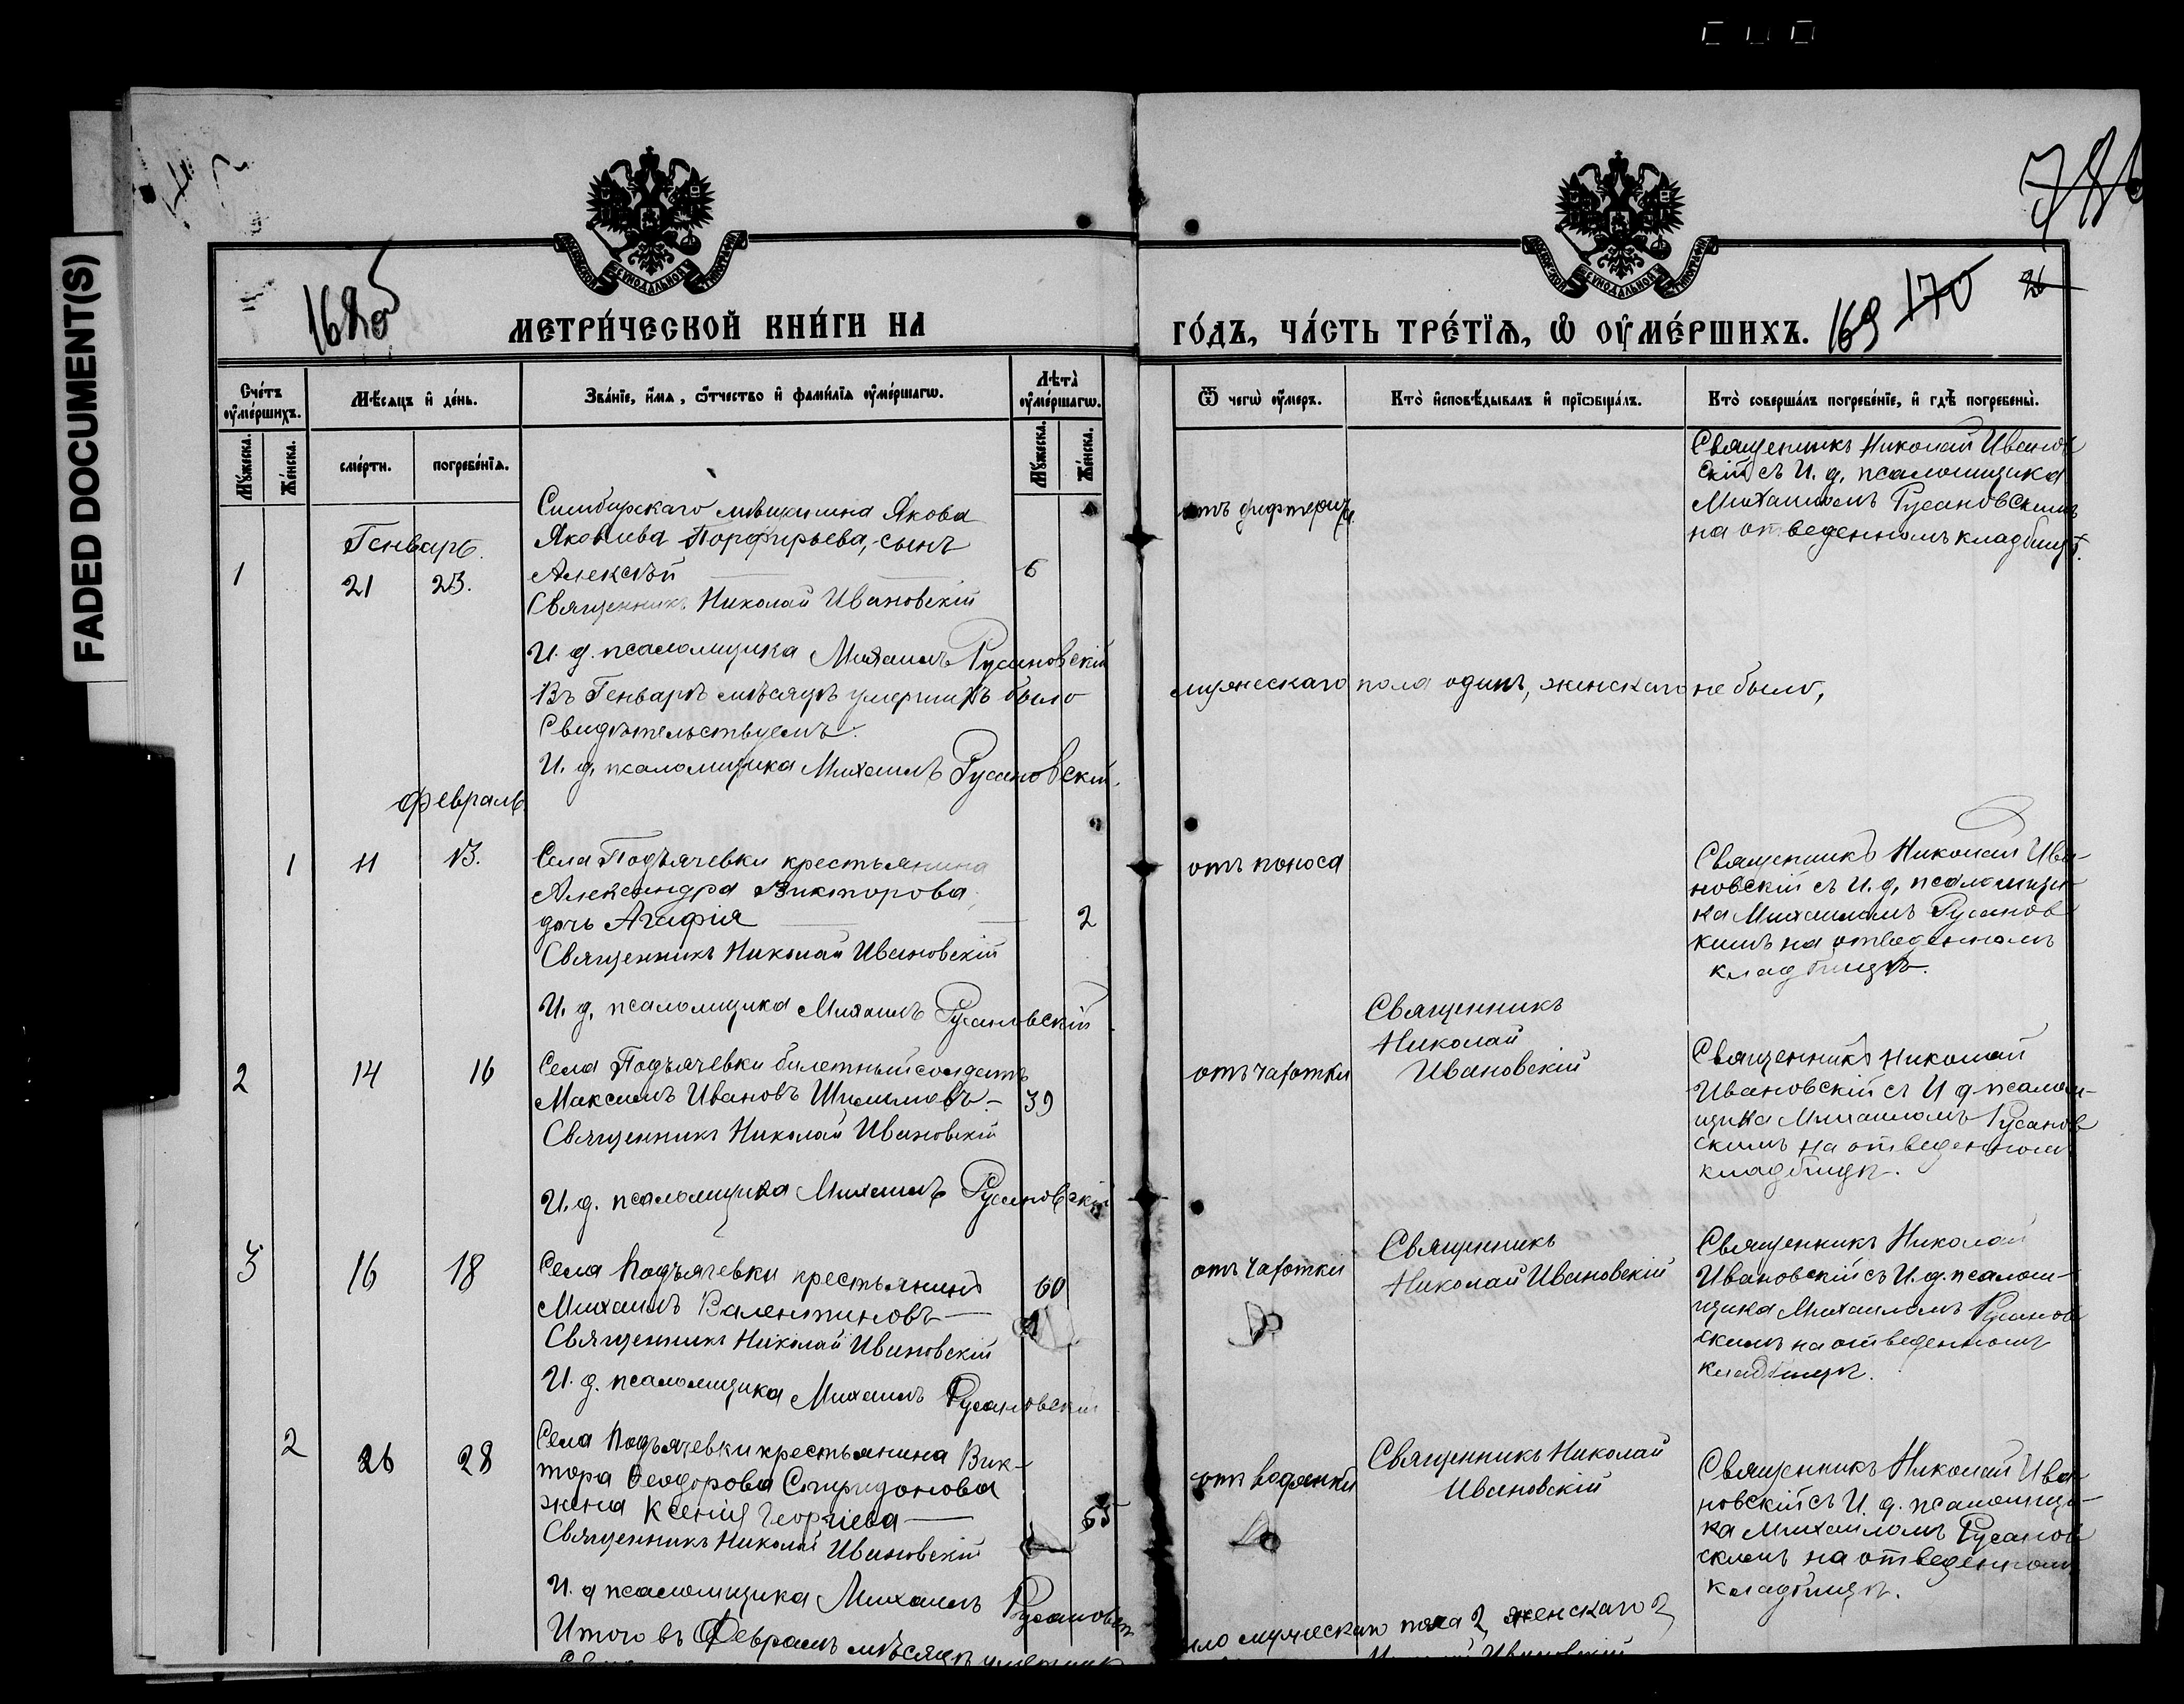 FADED DOCUMENT(S)
МЕТРИ́ЧЕСКОЙ КНИ́ГИ НА
ГО́ДЪ, ЧА́СТЬ ТРЕ́ТЇѦ, Ѡ ОУМЕ́РШИХЪ.
169 170 26
Сче́тъ оуме́ршихъ.
Мѣ́сѧцъ и де́нь.
Зва́нїе, и́мѧ, ѻ́тчество и фами́лїѧ оуме́ршагѡ.
Лѣта̀ оуме́ршагѡ.
Ѿ чегѡ̀ оу́меръ.
Кто̀ и҆сповѣ́дывалъ и прїѡбща́лъ.
Кто̀ соверша́лъ погребе́нїе, и гдѣ̀ погребены̀.
Му́жеска.
Же́нска.
сме́рти.
погребе́нїѧ.
Му́жеска.
Же́нска.
Генварь.
1 21 23.
Симбирскаго мѣщанина Якова
Яковлева Порфирьева, сынъ
Алексѣй 6
Священникъ Николай Ивановскій
И. д. псаломщика Михаилъ Русановскій
отъ дифтерита
Священникъ Николай Иванов
скій съ И. д. псаломщика
Михаиломъ Русановскимъ
на отведенномъ кладбищѣ.
Въ Генварѣ мѣсяцѣ умершихъ было мужескаго пола одинъ, женскаго не было,
Свидѣтельствуемъ.
И. д. псаломщика Михаилъ Русановскій.
Февраль
1 11 13.
Села Подъячевки крестьянина
Александра Викторова
дочь Агафія 2
Священникъ Николай Ивановскій
И. д. псаломщика Михаилъ Русановскій
отъ поноса
Священникъ Николай Ива-
новскій съ И. д. псаломщи-
ка Михаиломъ Русанов
кимъ на отведенномъ
кладбищѣ.
2 14 16
Села Подъячевки билетный солдатъ
Максимъ Ивановъ 39
Священникъ Николай Ивановскій
И. д. псаломщика Михаилъ Русановскій
отъ чахотки
Священникъ
Николай
Ивановскій
Священникъ Николай
Ивановскій съ И д псалом-
щика Михаиломъ Русанов
скимъ на отведенном
кладбищѣ.
3 16 18
Села Подъячевки крестьянинъ 60
Михаилъ Валентиновъ
Священникъ Николай Ивановскій
И. д. псаломщика Михаилъ Русановскій
отъ чахотки
Священникъ
Николай Ивановскій
Священникъ Николай
Ивановскій съ И. д. псалом-
щика Михаиломъ Русанов
скимъ на отведенномъ
кладбищѣ.
2 26 28
Села Подъячевки крестьянина Вик-
тора Ѳеодорова Спиридонова
жена Ксенія Георгіева 55
Священникъ Николай Ивановскій
И. д псаломщика Михаилъ Русановск
отъ водянки
Священникъ Николай
Ивановскій
Священникъ Николай Ива
новскій съ И. д. псаломщи-
ка Михаиломъ Русанов
скимъ на отведенном
кладбищѣ.
Итого въ Февралѣ мѣсяцѣ умерших
ло мужескаго пола 2, женскаго 2,
Ивановскій